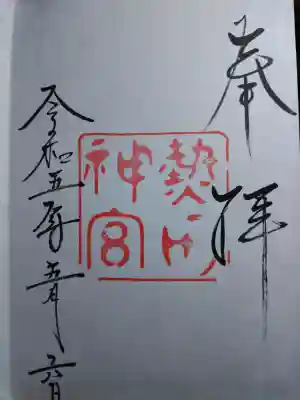 奉拝
熱田神宮
令和五年五月六日